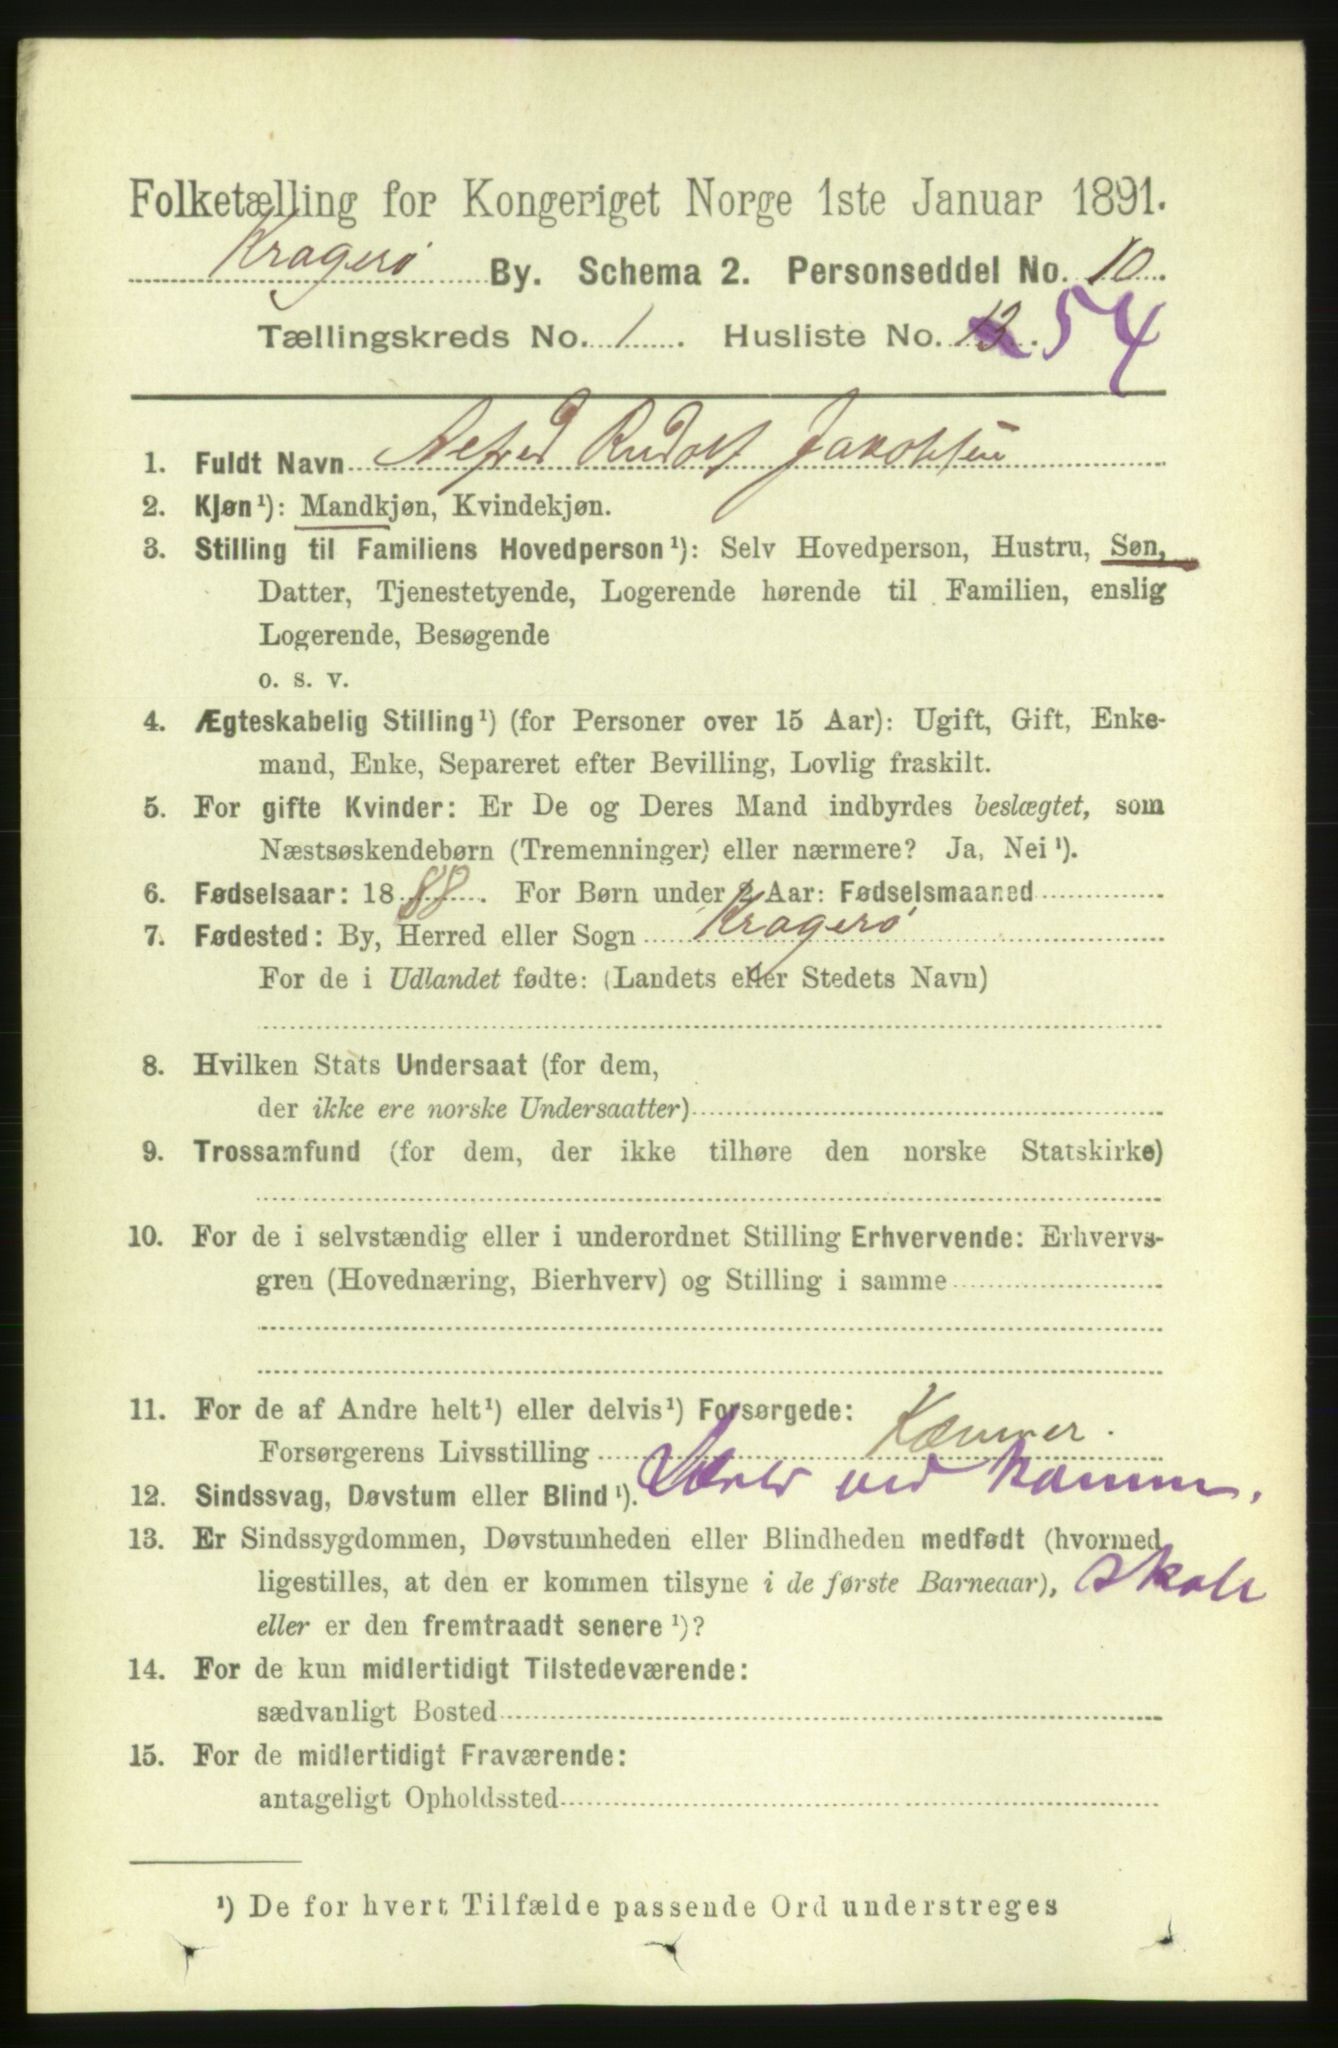 Folketælling for Kongeriget Norge 1ste Januar 1891.
Kragerø By. Schema 2. Personseddel No. 10
Tællingskreds No. 1. Husliste No. 13. 54
1. Fuldt Navn Alfred Rudolf Jakobsen
2. Kjøn¹): Mandkjøn, Kvindekjøn.
3. Stilling til Familiens Hovedperson¹): Selv Hovedperson, Hustru, Søn,
Datter, Tjenestetyende, Logerende hørende til Familien, enslig
Logerende, Besøgende
o. s. v.
4. Ægteskabelig Stilling¹) (for Personer over 15 Aar): Ugift, Gift, Enke-
mand, Enke, Separeret efter Bevilling, Lovlig fraskilt.
5. For gifte Kvinder: Er De og Deres Mand indbyrdes beslægtet, som
Næstsøskendebørn (Tremenninger) eller nærmere? Ja, Nei¹).
6. Fødselsaar: 1888. For Børn under 2 Aar: Fødselsmaaned
7. Fødested: By, Herred eller Sogn Kragerø
For de i Udlandet fødte: (Landets eller Stedets Navn)
8. Hvilken Stats Undersaat (for dem,
der ikke ere norske Undersaatter)
9. Trossamfund (for dem, der ikke tilhøre den norske Statskirke)
10. For de i selvstændig eller i underordnet Stilling Erhvervende: Erhvervs-
gren (Hovednæring, Bierhverv) og Stilling i samme
11. For de af Andre helt¹) eller delvis¹) Forsørgede:
Forsørgerens Livsstilling Kæmner.
12. Sindssvag, Døvstum eller Blind¹). ved
13. Er Sindssygdommen, Døvstumheden eller Blindheden medfødt (hvormed
ligestilles, at den er kommen tilsyne i de første Barneaar), skole
eller er den fremtraadt senere¹)?
14. For de kun midlertidigt Tilstedeværende:
sædvanligt Bosted
15. For de midlertidigt Fraværende:
antageligt Opholdssted
¹) De for hvert Tilfælde passende Ord understreges